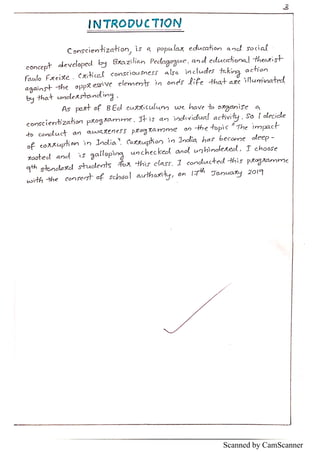 3
INTRODUCTION
Conscientization, is a popular education and social
concept developed by Brazilian Pedagogue, and educational theorist
Paulo Freire. Critical consciousness also includes taking action
against the oppressive elements in one's life that are illuminated
by that understanding.
As part of BEd curriculum we have to organise a
conscientization programme. It is an individual activity. So I decide
to conduct an awareness programme on the topic "The impact
of corruption in India". Corruption in India has become deep-
rooted and is galloping unchecked and unhindered. I choose
9th standard students for this class. I conducted this programme
with the consent of school authority, on 17th January 2019
Scanned by CamScanner